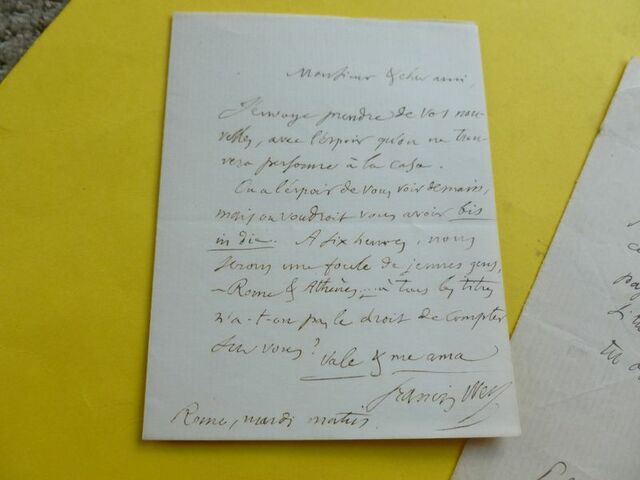 Monsieur & cher ami,
J'envoye prendre de vos nou-
velles, avec l'espoir qu'on ne trou-
vera personne à la casa.
On a l'espoir de vous voir demain,
mais on voudroit vous avoir bis
in die. A six heures, nous
serons une foule de jeunes gens,
– Rome & Athènes.... à tous les titres
n'a-t-on pas le droit de compter
sur vous?
Vale & me ama
Francis Wey
Rome, mardi matin.